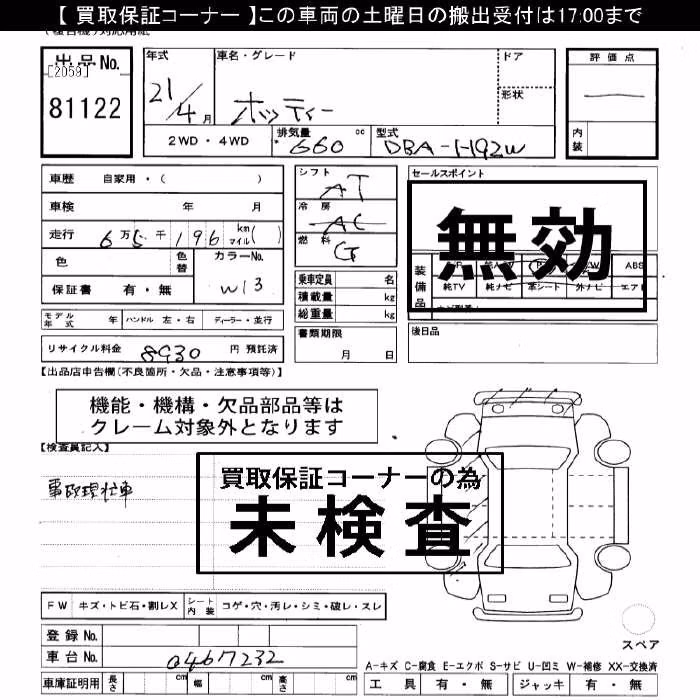 【 買取保証コーナー 】この車両の土曜日の搬出受付は17:00まで
出品No.
[2059]
81122
年式
21/4月
車名・グレード
オッティー
ドア
形状
評価点
内装
2WD・4WD
排気量
660 cc
型式
DBA-H92W
車歴 自家用・( )
車検 年 月
走行 6万5千196 km マイル( )
色
色替
カラーNo.
W13
保証書 有・無
シフト
AT
冷房
AC
燃料
G
乗車定員 名
積載量 kg
総重量 kg
書類期限
月 日
セールスポイント
無効
装備品
ABS
純TV 純ナビ 革シート 外ナビ エアB
後日品
モデル年式 年 ハンドル 左・右 ディーラー・並行
リサイクル料金 8930 円 預託済
【出品店申告欄(不良箇所・欠品・注意事項等)】
機能・機構・欠品部品等は
クレーム対象外となります
【検査員記入】
事故現状車
買取保証コーナーの為
未検査
FW キズ・トビ石・割レX シート内装 コゲ・穴・汚レ・シミ・破レ・スレ
登録No.
車台No. 0467232
車庫証明用 長さ cm 幅 cm 高さ cm
スペア
A-キズ C-腐食 E-エクボ S-サビ U-凹ミ W-補修 XX-交換済
工具 有・無 ジャッキ 有・無